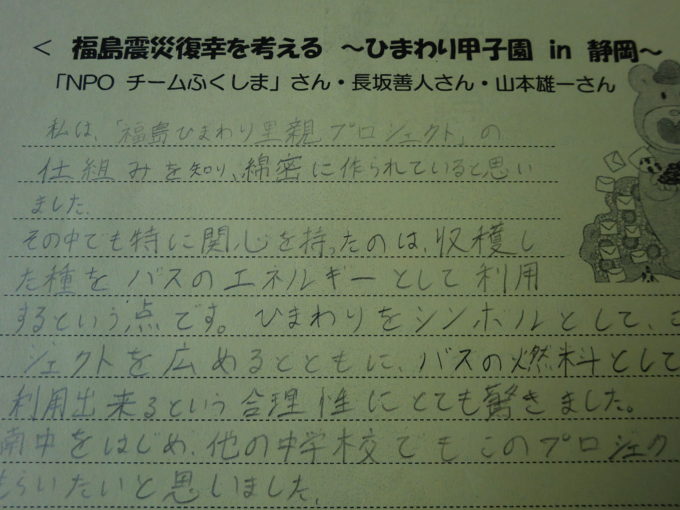 < 福島震災復幸を考える ～ひまわり甲子園 in 静岡～
「NPO チームふくしま」さん・長坂善人さん・山本雄一さん
私は、「福島ひまわり里親プロジェクト」の
仕組みを知り、綿密に作られていると思い
ました。
その中でも特に関心を持ったのは、収穫し
た種をバスのエネルギーとして利用
するという点です。ひまわりをシンボルとして、こ
ジェクトを広めるとともに、バスの燃料として
利用出来るという合理性にとても驚きました。
南中をはじめ、他の中学校でもこのプロジェク
もらいたいと思いました。